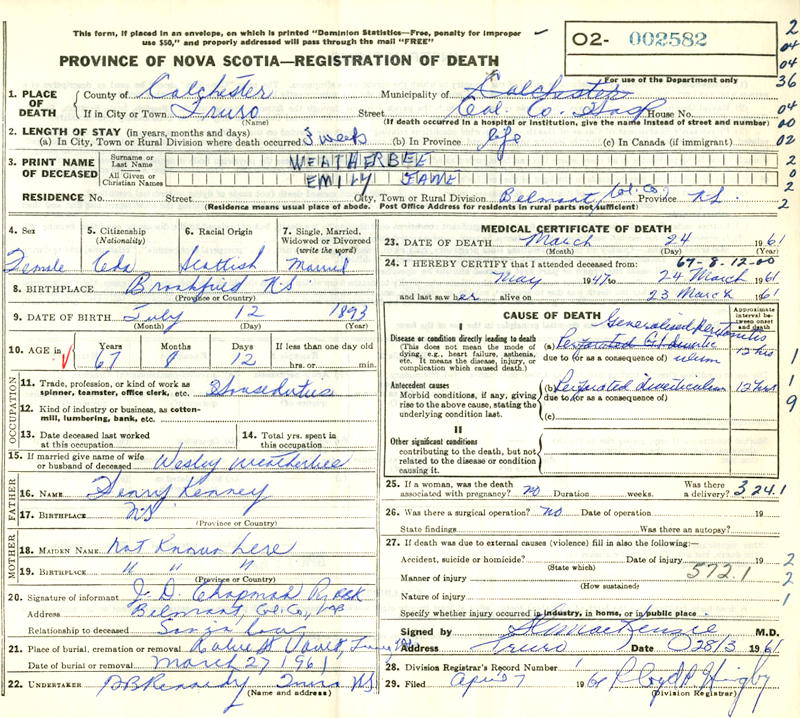 This form, if placed in an envelope, on which is printed "Dominion Statistics—Free, penalty for improper
use $50," and properly addressed will pass through the mail "FREE"
O2- 002582
PROVINCE OF NOVA SCOTIA—REGISTRATION OF DEATH
For use of the Department only
2
04
04
36
04
00
02
2
0
2
2
1. PLACE OF DEATH
County of Colchester Municipality of Colchester
If in City or Town Truro Street Col. Co. Hosp House No.
(Name) (If death occurred in a hospital or institution, give the name instead of street and number)
2. LENGTH OF STAY (in years, months and days)
(a) In City, Town or Rural Division where death occurred 3 weeks (b) In Province life (c) In Canada (if immigrant)
3. PRINT NAME OF DECEASED
Surname or Last Name WEATHERBEE
All Given or Christian Names EMILY JANE
RESIDENCE No. Street City, Town or Rural Division Belmont Col. Co. Province N.S.
(Residence means usual place of abode. Post Office Address for residents in rural parts not sufficient)
4. Sex
Female
5. Citizenship (Nationality)
Cda
6. Racial Origin
Scottish
7. Single, Married, Widowed or Divorced (write the word)
Married
8. BIRTHPLACE Brookfield N.S.
(Province or Country)
9. DATE OF BIRTH July 12 1893
(Month) (Day) (Year)
10. AGE in Years Months Days If less than one day
67 8 12 hrs. or min.
OCCUPATION
11. Trade, profession, or kind of work as spinner, teamster, office clerk, etc. Houseduties
12. Kind of industry or business, as cotton-mill, lumbering, bank, etc.
13. Date deceased last worked at this occupation
14. Total yrs. spent in this occupation
15. If married give name of wife or husband of deceased Wesley Weatherbee
FATHER
16. NAME Henry Kenney
17. BIRTHPLACE N.S.
(Province or Country)
MOTHER
18. MAIDEN NAME Not Known here
19. BIRTHPLACE " " "
(Province or Country)
20. Signature of informant J. D. Chapman
Address Belmont, Col. Co., N.S.
Relationship to deceased Son in law
21. Place of burial, cremation or removal
Date of burial or removal March 27 1961
22. UNDERTAKER Kennedy Truro N.S.
(Name and address)
MEDICAL CERTIFICATE OF DEATH
23. DATE OF DEATH March 24 1961
(Month) (Day) (Year)
67-8-12-00
24. I HEREBY CERTIFY that I attended deceased from:
May 1947 to 24 March 1961
and last saw her alive on 23 March 1961
CAUSE OF DEATH
Approximate interval between onset and death
I
Disease or condition directly leading to death
(This does not mean the mode of dying, e.g., heart failure, asthenia, etc. It means the disease, injury, or complication which caused death.)
Generalised Peritonitis
(a) Perforated 12 hrs
due to (or as a consequence of)
Antecedent causes
Morbid conditions, if any, giving rise to the above cause, stating the underlying condition last.
(b) Perforated diverticulum 12 hrs
due to (or as a consequence of)
(c)
II
Other significant conditions
contributing to the death, but not related to the disease or condition causing it.
1
1
9
25. If a woman, was the death associated with pregnancy? no Duration weeks. Was there a delivery? 3241
26. Was there a surgical operation? no Date of operation 19
State findings Was there an autopsy?
27. If death was due to external causes (violence) fill in also the following:—
Accident, suicide or homicide? Date of injury 19
(State which)
572.1
Manner of injury
(How sustained)
Nature of injury
2
2
1
Specify whether injury occurred in industry, in home, or in public place
Signed by MacKenzie M.D.
Address Truro Date 28/3 1961
28. Division Registrar's Record Number
29. Filed April 7 1961 Lloyd P. Higby
(Division Registrar)